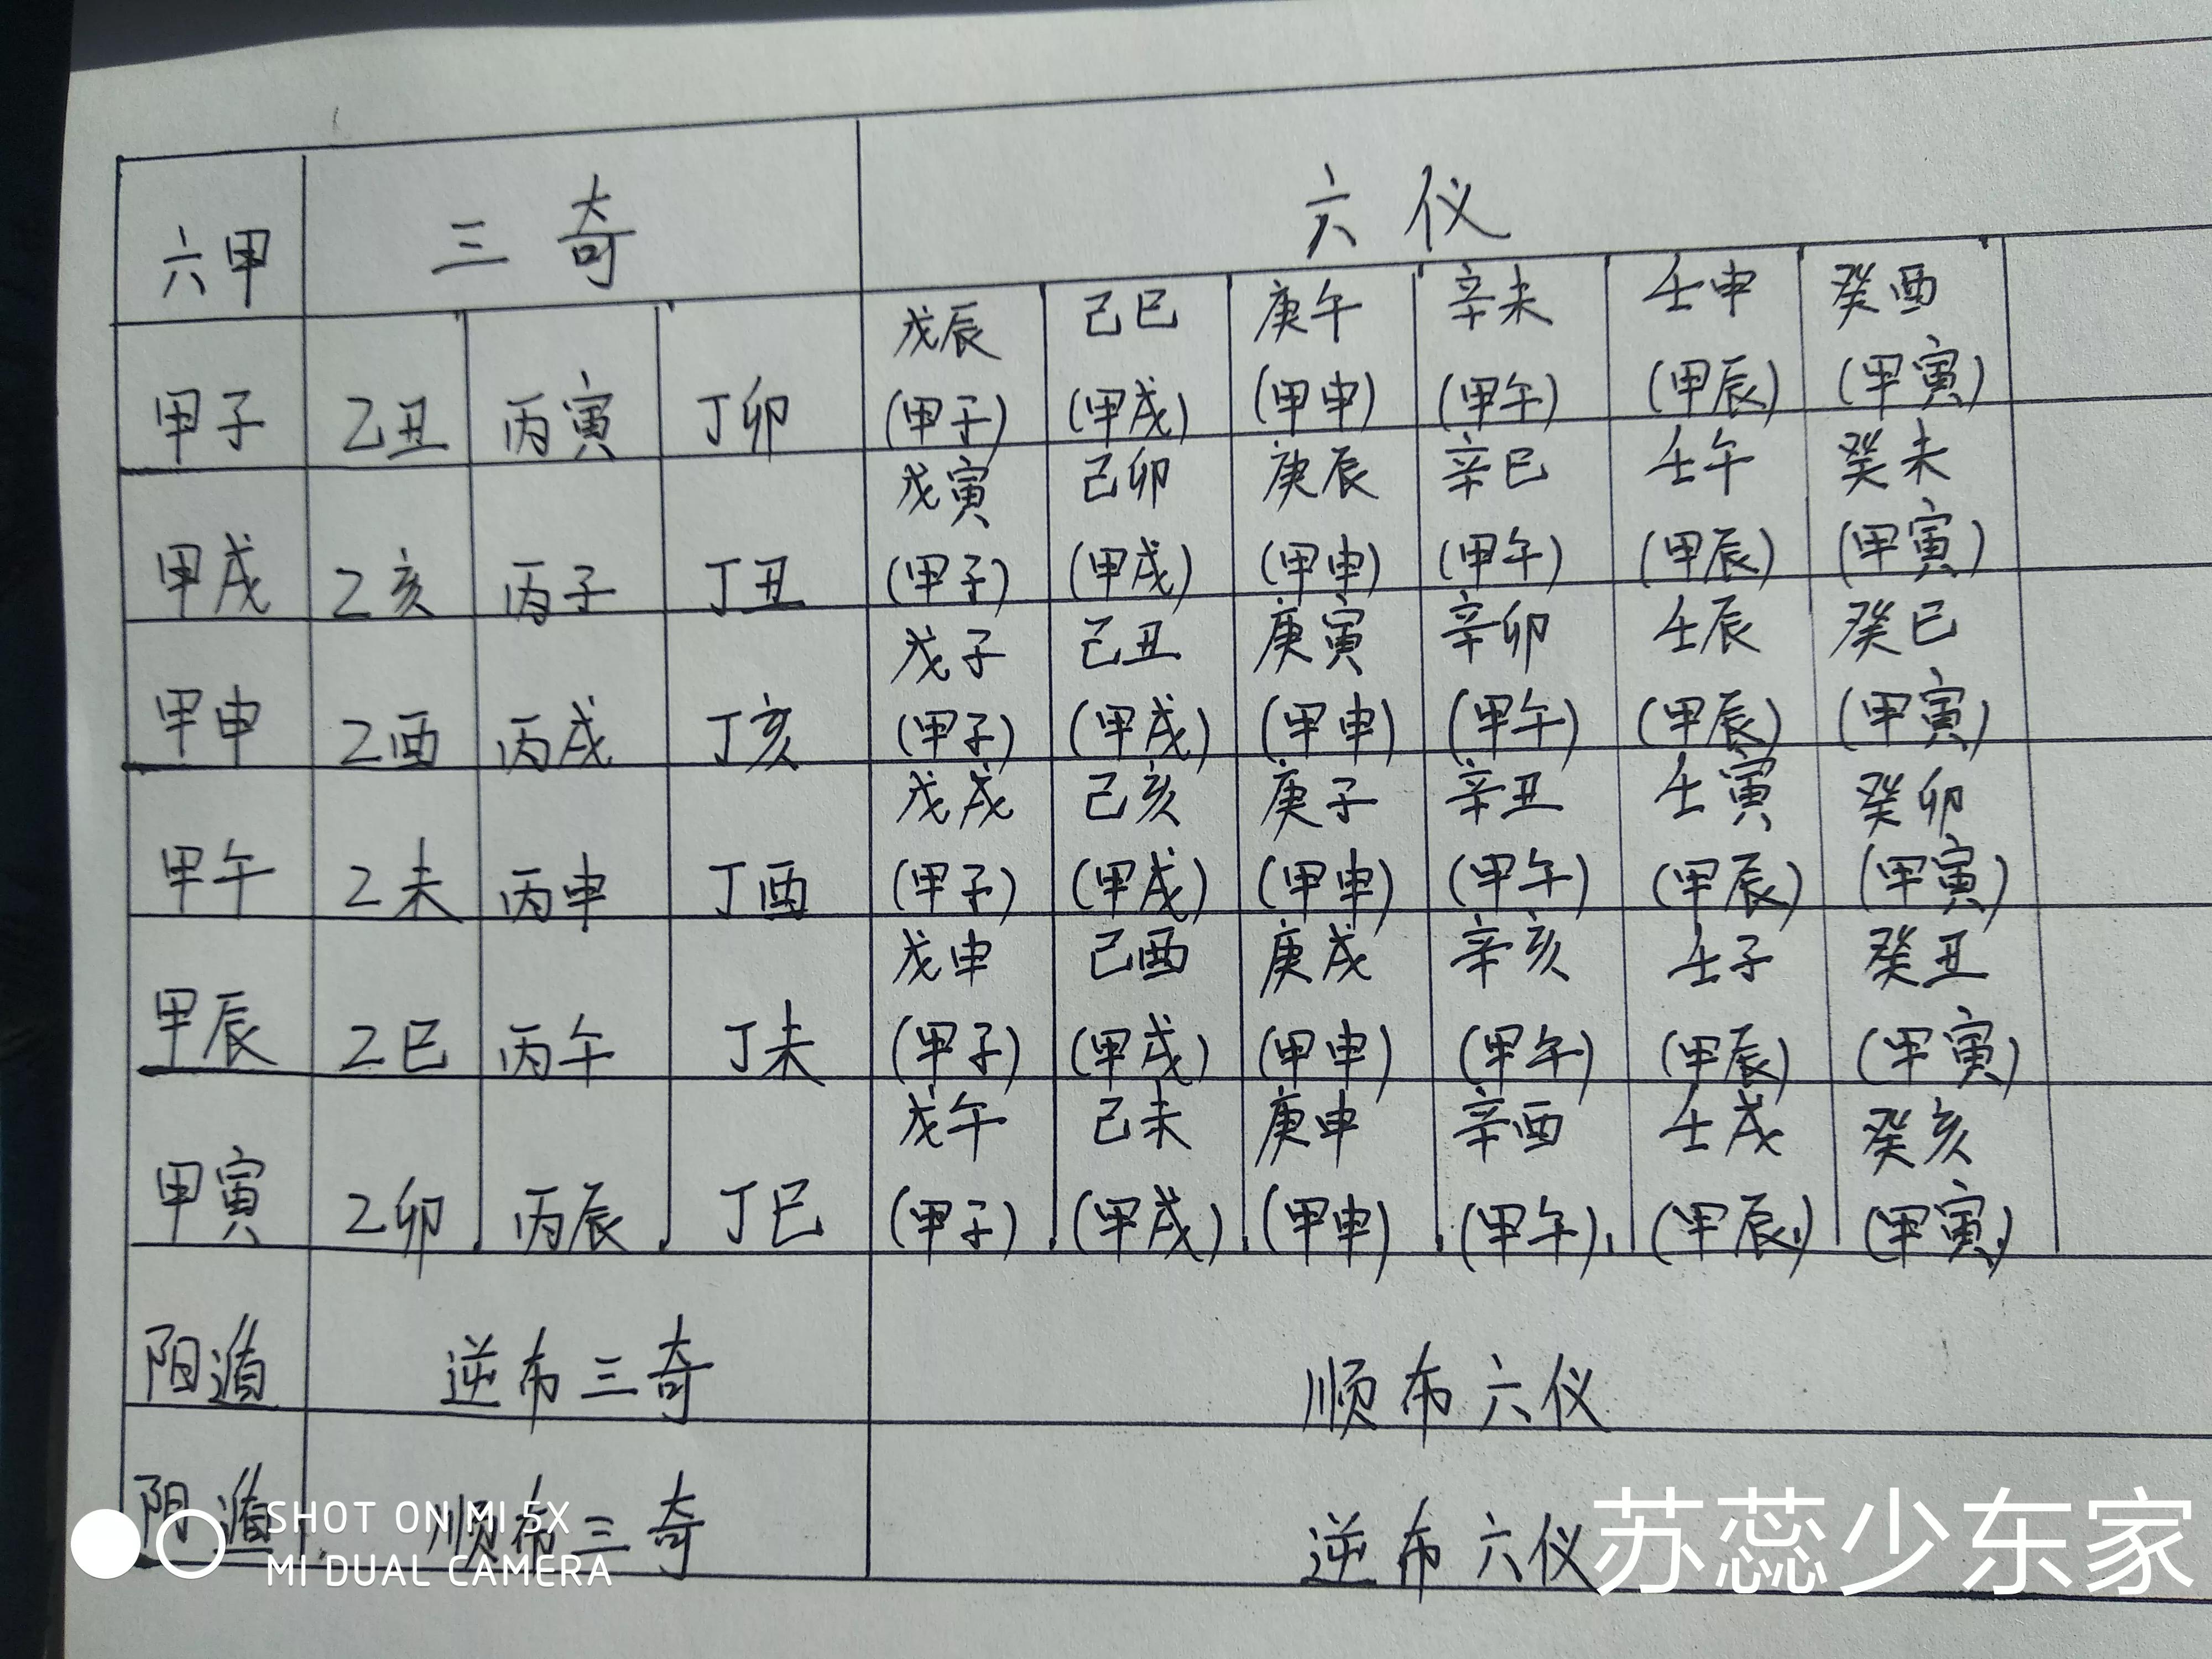 六甲 三奇 六仪
戊辰 己巳 庚午 辛未 壬申 癸酉
甲子 乙丑 丙寅 丁卯 (甲子) (甲戌) (甲申) (甲午) (甲辰) (甲寅)
戊寅 己卯 庚辰 辛巳 壬午 癸未
甲戌 乙亥 丙子 丁丑 (甲子) (甲戌) (甲申) (甲午) (甲辰) (甲寅)
戊子 己丑 庚寅 辛卯 壬辰 癸巳
甲申 乙酉 丙戌 丁亥 (甲子) (甲戌) (甲申) (甲午) (甲辰) (甲寅)
戊戌 己亥 庚子 辛丑 壬寅 癸卯
甲午 乙未 丙申 丁酉 (甲子) (甲戌) (甲申) (甲午) (甲辰) (甲寅)
戊申 己酉 庚戌 辛亥 壬子 癸丑
甲辰 乙巳 丙午 丁未 (甲子) (甲戌) (甲申) (甲午) (甲辰) (甲寅)
戊午 己未 庚申 辛酉 壬戌 癸亥
甲寅 乙卯 丙辰 丁巳 (甲子) (甲戌) (甲申) (甲午) (甲辰) (甲寅)
阳遁 逆布三奇 顺布六仪
阴遁 顺布三奇 逆布六仪
SHOT ON MI 5X
MI DUAL CAMERA
苏蕊少东家